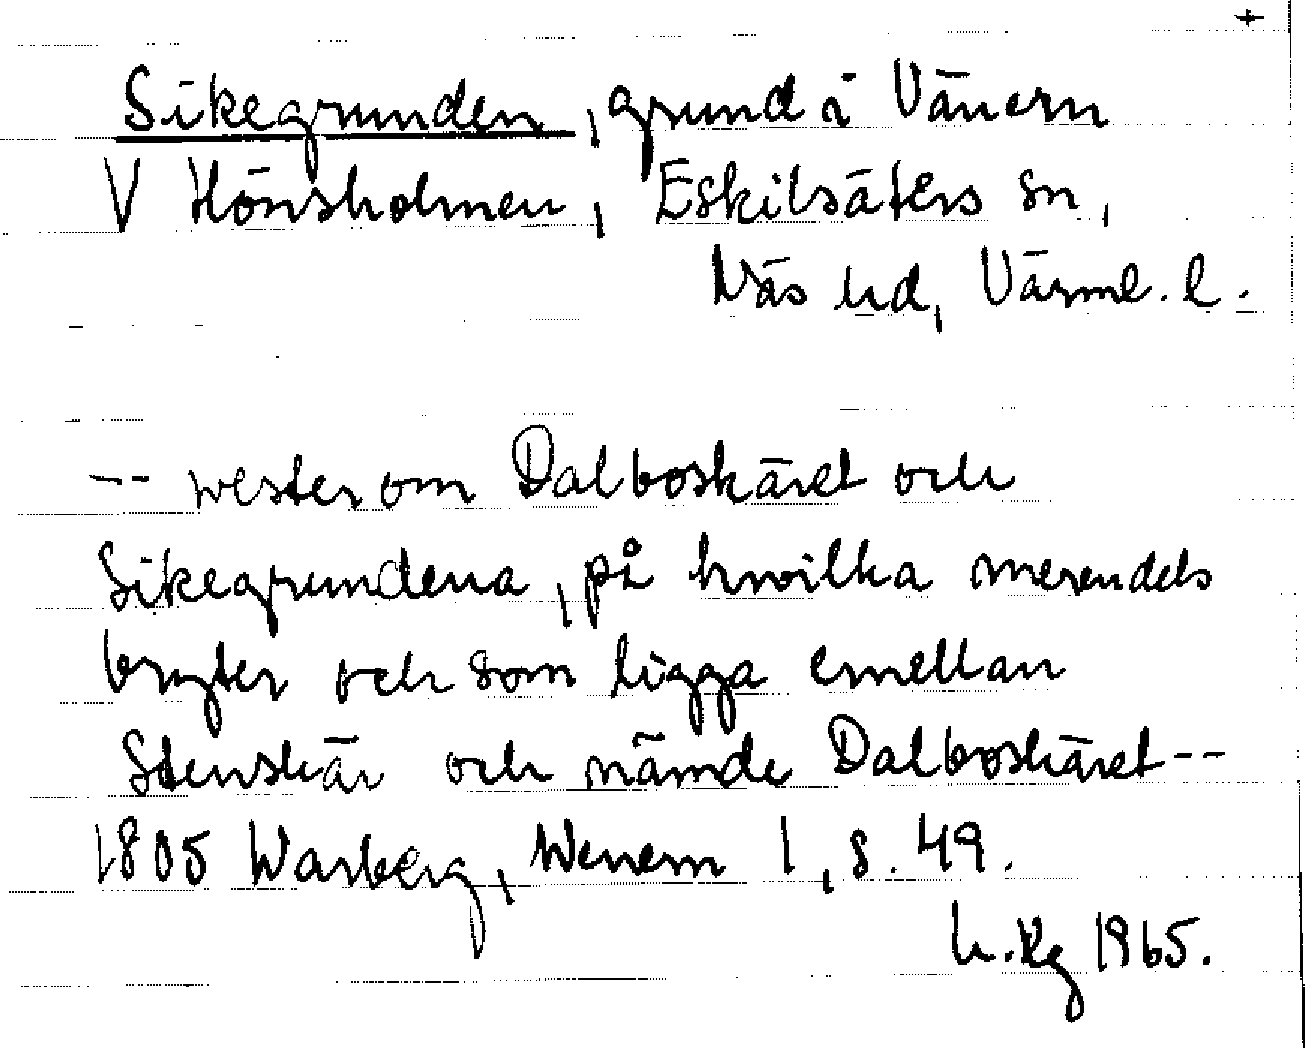 +
Sikegrunden, grund i Vänern
V Hönsholmen, Eskilsäters sn,
Näs hd, Värml. l.
-- wester om Dalboskäret och
Sikegrundena, på hwilka merendels
bryter och som ligga emellan
Stenskär och nämde Dalboskäret --
1805 Warberg, Wenern 1, s. 49.
h. Kg 1965.